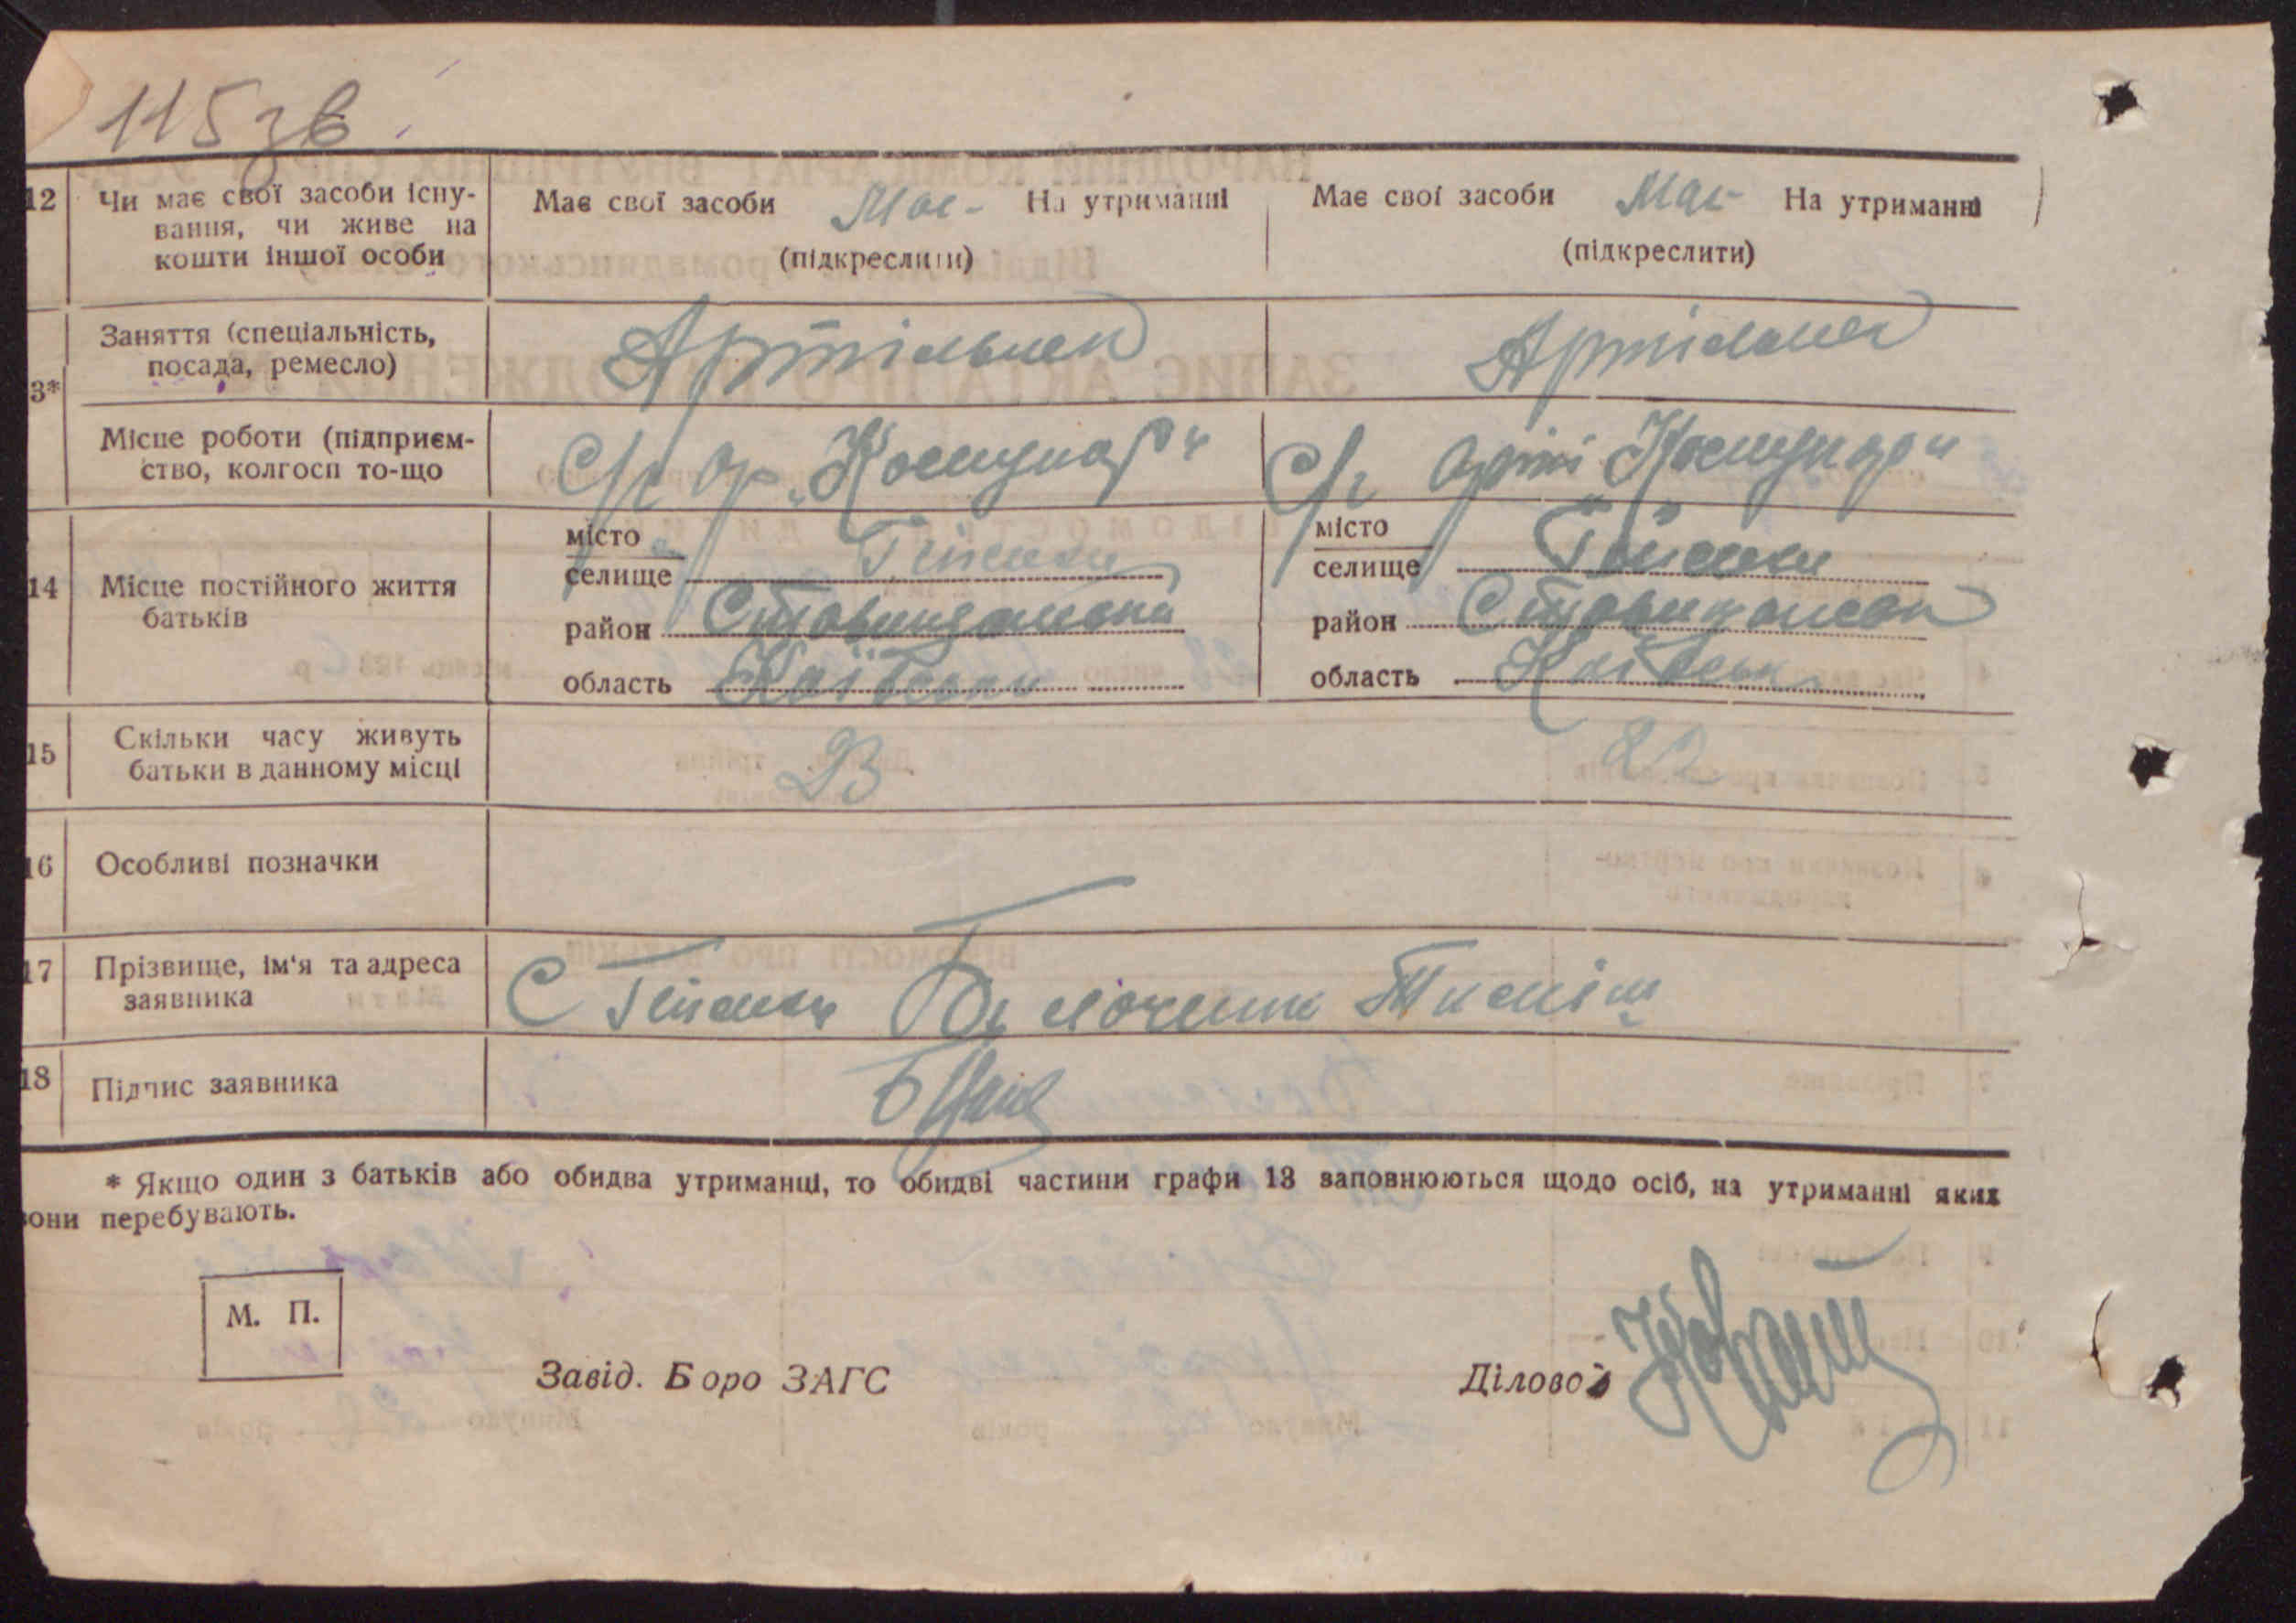 115 зв
12 Чи має свої засоби існу-
вання, чи живе на
кошти іншої особи
Має свої засоби Має На утриманні
(підкреслити)
Має свої засоби Має На утриманні
(підкреслити)
3* Заняття (спеціальність,
посада, ремесло)
Артільнен
Артільнен
Місце роботи (підприєм-
ство, колгосп то-що
С/г ар. „Комунар"
С/г арті „Комунар"
14 Місце постійного життя
батьків
місто
селище
район
область Київськ
місто
селище
район
область Київськ
15 Скільки часу живуть
батьки в данному місці
23
22
16 Особливі позначки
17 Прізвище, ім'я та адреса
заявника
С
18 Підпис заявника
* Якщо один з батьків або обидва утриманці, то обидві частини графи 13 заповнюються щодо осіб, на утриманні яких
вони перебувають.
М. П.
Завід. Бюро ЗАГС
Діловод